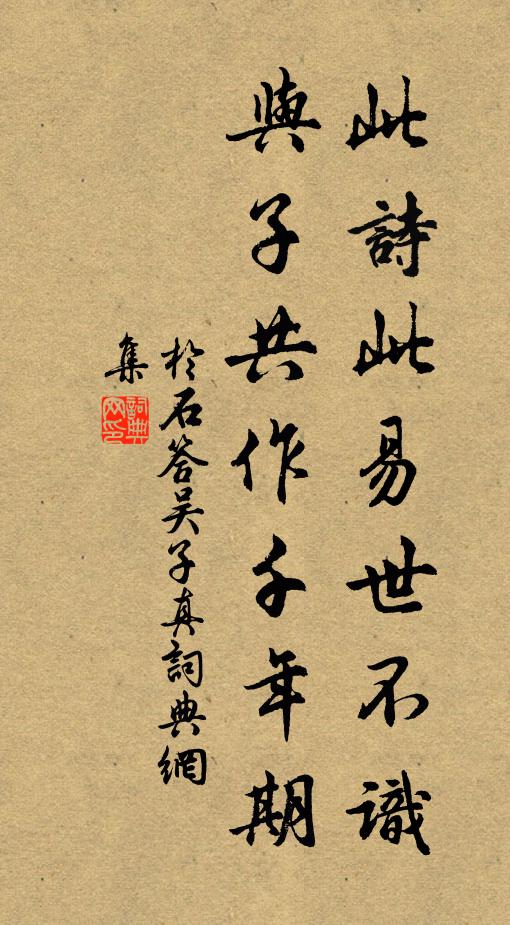 此詩此易世不識
與子共作千年期
於石答吴子真詞典網
集
詞典网印